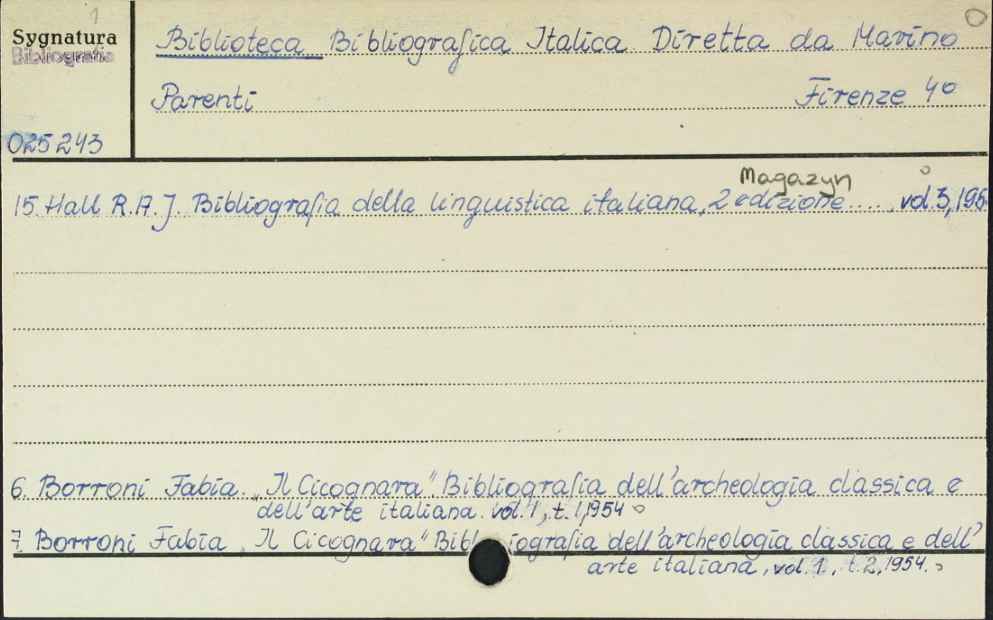 1
Sygnatura
Bibliografia
025243
Biblioteca Bibliografica Italica Diretta da Marino
Parenti Firenze 4°
Magazyn
15. Hall R.A.J. Bibliografia della linguistica italiana, 2 edizione...., vol. 3, 195
6. Borroni Fabia. „Il Cicognara". Bibliografia dell'archeologia classica e
dell'arte italiana. vol. 1, t. 1, 1954
7. Borroni Fabia „Il Cicognara" Bibliografia dell'archeologia classica e dell'
arte italiana, vol. 1, t. 2, 1954.